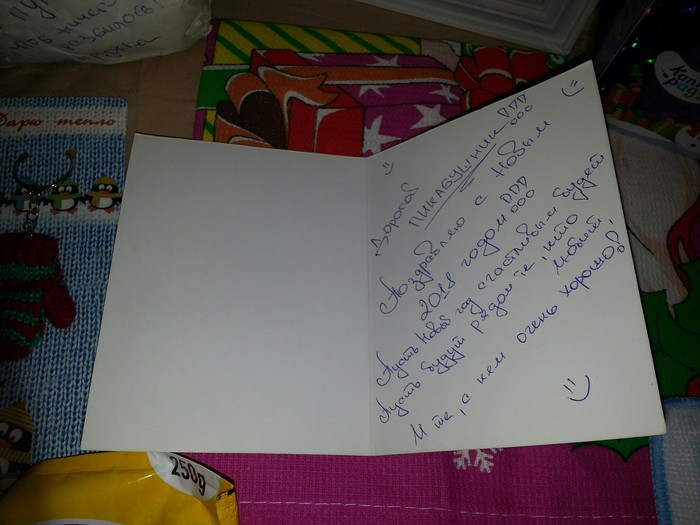 Дорогой
ПИКАБУШНИК !!!
Поздравляю с Новым
2018 годом !!!
Пусть Новый год счастливым будет
Пусть будут рядом те, кто любит,
И те, с кем очень хорошо!
Дарю тепло
250g